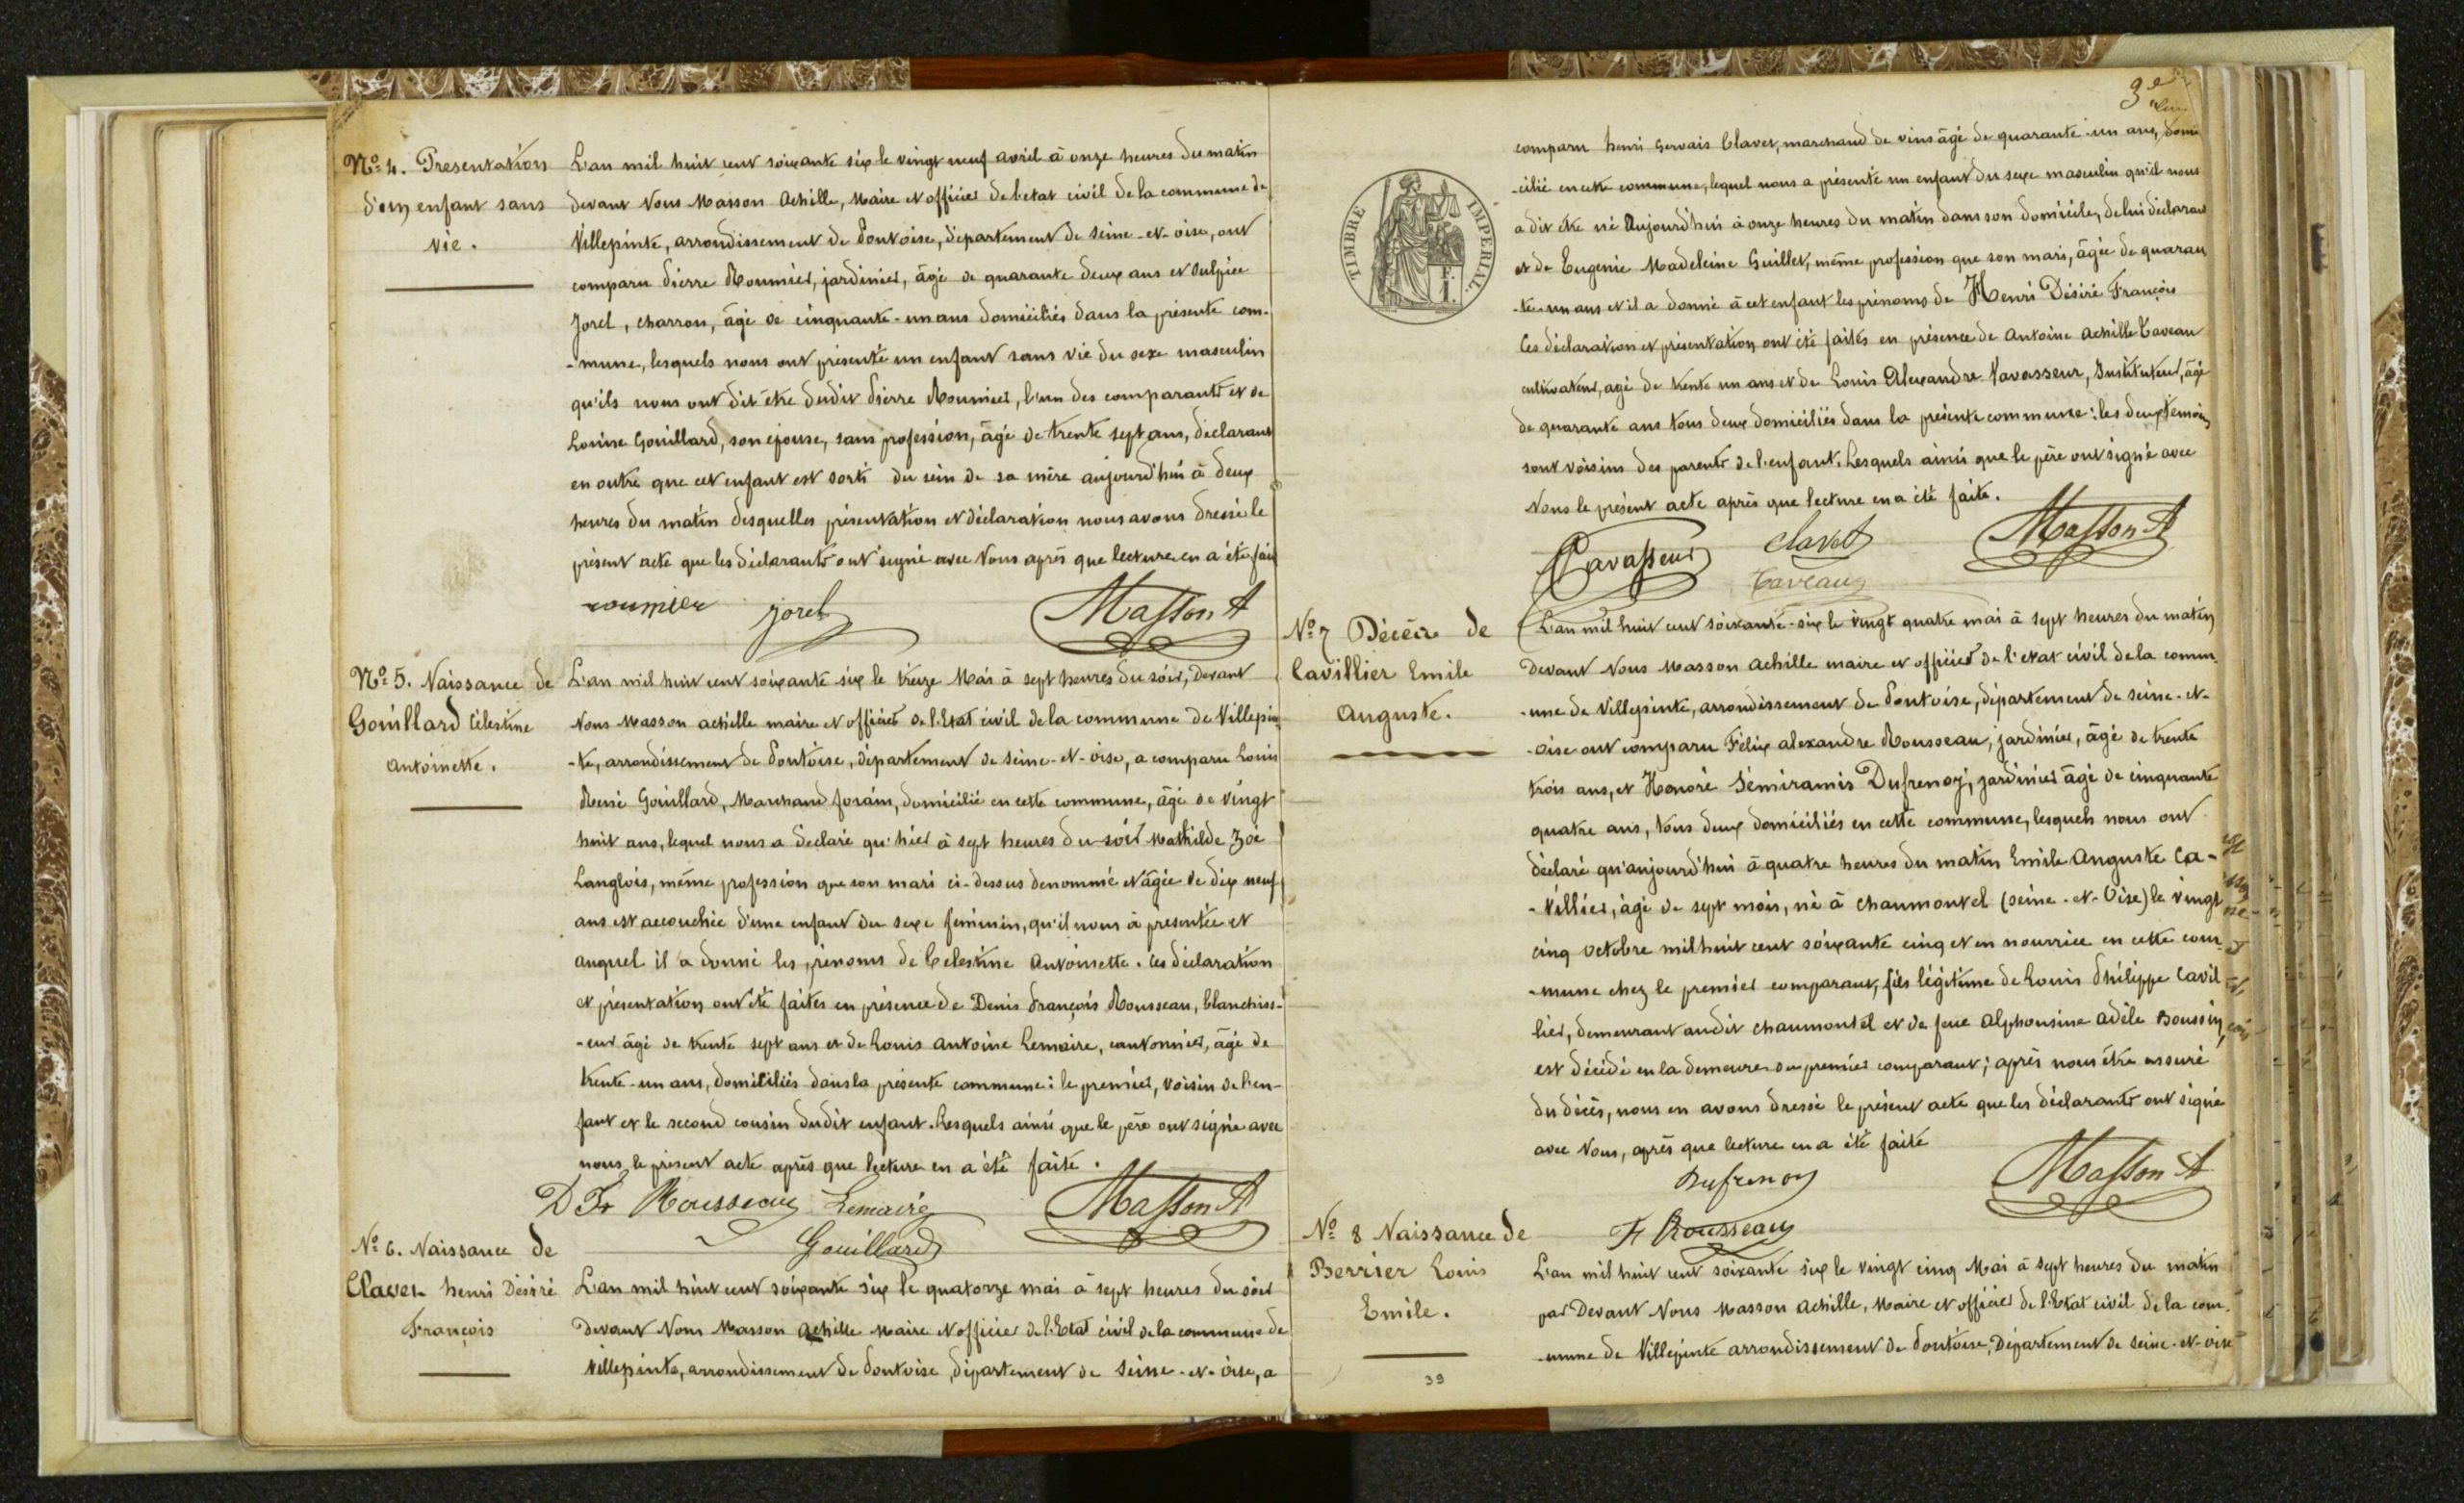 Nº 4. Presentation
d'un enfant sans
vie.
L'an mil huit cent soixante six le vingt neuf avril à onze heures du matin
devant Nous Masson Achille, Maire et officier de l'etat civil de la commune de
Villepinte, arrondissement de Pontoise, département de Seine-et-oise, ont
comparu Pierre Roumier, jardinier, âgé de quarante deux ans et Sulpice
Jorel, charron, âgé de cinquante-un ans domiciliés dans la présente com-
-mune, lesquels nous ont présenté un enfant sans vie du sexe masculin
qu'ils nous ont dit être dudit Pierre Roumier, l'un des comparants et de
Louise Gouillard, son épouse, sans profession, âgé de trente sept ans, déclarant
en outre que cet enfant est sorti du sein de sa mère aujourd'hui à deux
heures du matin desquelles présentation et déclaration nous avons dressé le
présent acte que les déclarants ont signé avec Nous après que lecture en a été fai
roumier jorel Masson A
Nº 5. Naissance de
Gouillard Célestine
Antoinette.
L'an mil huit cent soixante six le treize Mai à sept heures du soir, Devant
Nous Masson achille maire et officier de l'Etat civil de la commune de Villepin
-te, arrondissement de Pontoise, département de Seine-et-oise, a comparu Louis
René Gouillard, Marchand forain, domicilié en cette commune, âgé de vingt
huit ans, lequel nous a déclaré qu'hier à sept heures du soir Mathilde Zoé
Langlois, même profession que son mari ci-dessus denommé et âgée de dix neuf
ans est accouchée d'une enfant du sexe feminin, qu'il nous à présentée et
auquel il a donné les prénoms de Celestine Antoinette. Ces déclaration
et présentation ont été faites en présence de Denis François Rousseau, blanchiss-
-eur âgé de trente sept ans et de Louis Antoine Lemaire, cantonnier, âgé de
trente-un ans, domiciliés dans la présente commune: le premier, voisin de l'en-
fant et le second cousin dudit enfant. Lesquels ainsi que le père ont signé avec
nous le présent acte après que lecture en a été faite.
D Fr Rousseau Lemaire Masson A
Gouillard
Nº 6. Naissance de
Claver henri Désiré
François
L'an mil huit cent soixante six le quatorze mai à sept heures du soir
Devant Nous Masson Achille Maire et officier de l'Etat civil de la commune de
Villepinte, arrondissement de Pontoise, département de Seine-et-oise, a
3e
TIMBRE IMPERIAL.
1 F.
comparu henri Gervais Claver, marchand de vins âgé de quarante-un ans, domi
-cilié en cette commune, lequel nous a présenté un enfant du sexe masculin qu'il nous
a dit être né Aujourd'hui à onze heures du matin dans son domicile, de lui déclarant
et de Eugenie Madeleine Guillet, même profession que son mari, âgée de quaran
-te-un ans et il a donné à cet enfant les prénoms de Henri Désiré François
Ces déclaration et présentation ont été faites en présence de Antoine Achille Taveau
cultivateur, agé de trente un ans et de Louis Alexandre Vavasseur, Instituteur, âgé
de quarante ans tous deux domiciliés dans la présente commune: les deux témoins
sont voisins des parents de l'enfant. Lesquels ainsi que le père ont signé avec
Nous le présent acte après que lecture en a été faite.
Vavasseur Clavet Masson A
Taveau
Nº 7 Décès de
Cavillier Emile
Auguste.
L'an mil huit cent soixante-six le vingt quatre mai à sept heures du matin
Devant Nous Masson Achille maire et officier de l'etat civil de la comm
-une de Villepinte, arrondissement de Pontoise, département de Seine-et-
-oise ont comparu Félix alexandre Rousseau, jardinier, âgé de trente
trois ans, et Honoré Sémiramis Dufrenoy, jardinier âgé de cinquante
quatre ans, tous deux domiciliés en cette commune, lesquels nous ont
déclaré qu'aujourd'hui à quatre heures du matin Emile Auguste Ca-
-villier, âgé de sept mois, né à Chaumontel (Seine-et-Oise) le vingt
cinq octobre mil huit cent soixante cinq et en nourrice en cette com-
-mune chez le premier comparant, fils légitime de Louis Philippe Cavil
lier, demeurant audit Chaumontel et de feue Alphonsine Adèle Boussin,
est décédé en la demeure du premier comparant; après nous être assuré
du décès, nous en avons dressé le présent acte que les déclarants ont signé
avec Nous, après que lecture en a été faite
Dufrenoy Masson A
F Rousseau
Nº 8 Naissance de
Berrier Louis
Emile.
L'an mil huit cent soixante six le vingt cinq Mai à sept heures du matin
par Devant Nous Masson Achille, Maire et officier de l'Etat civil de la com-
-mune de Villepinte arrondissement de Pontoise, Département de Seine-et-oise
39